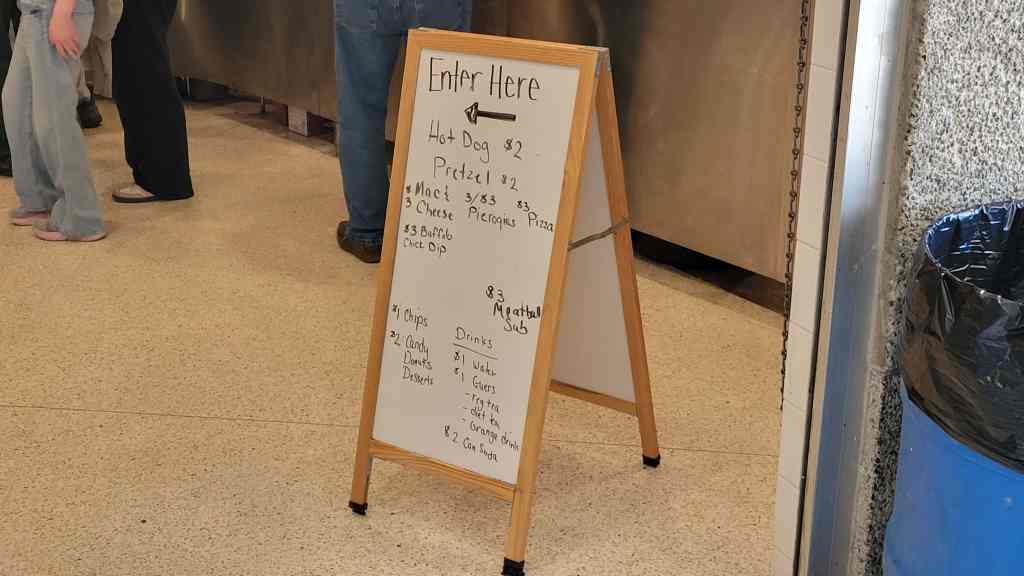 Enter Here
Hot Dog $2
Pretzel $2
$ Mac & 3/$3 $3
3 Cheese Pierogies Pizza
$3 Buffalo
Chick Dip
$3
Meatball
Sub
$1 Chips
$2 Candy
Donuts
Desserts
Drinks
$1 Water
$1 Guers
- reg tea
- diet tea
- orange drink
$2 Can Soda